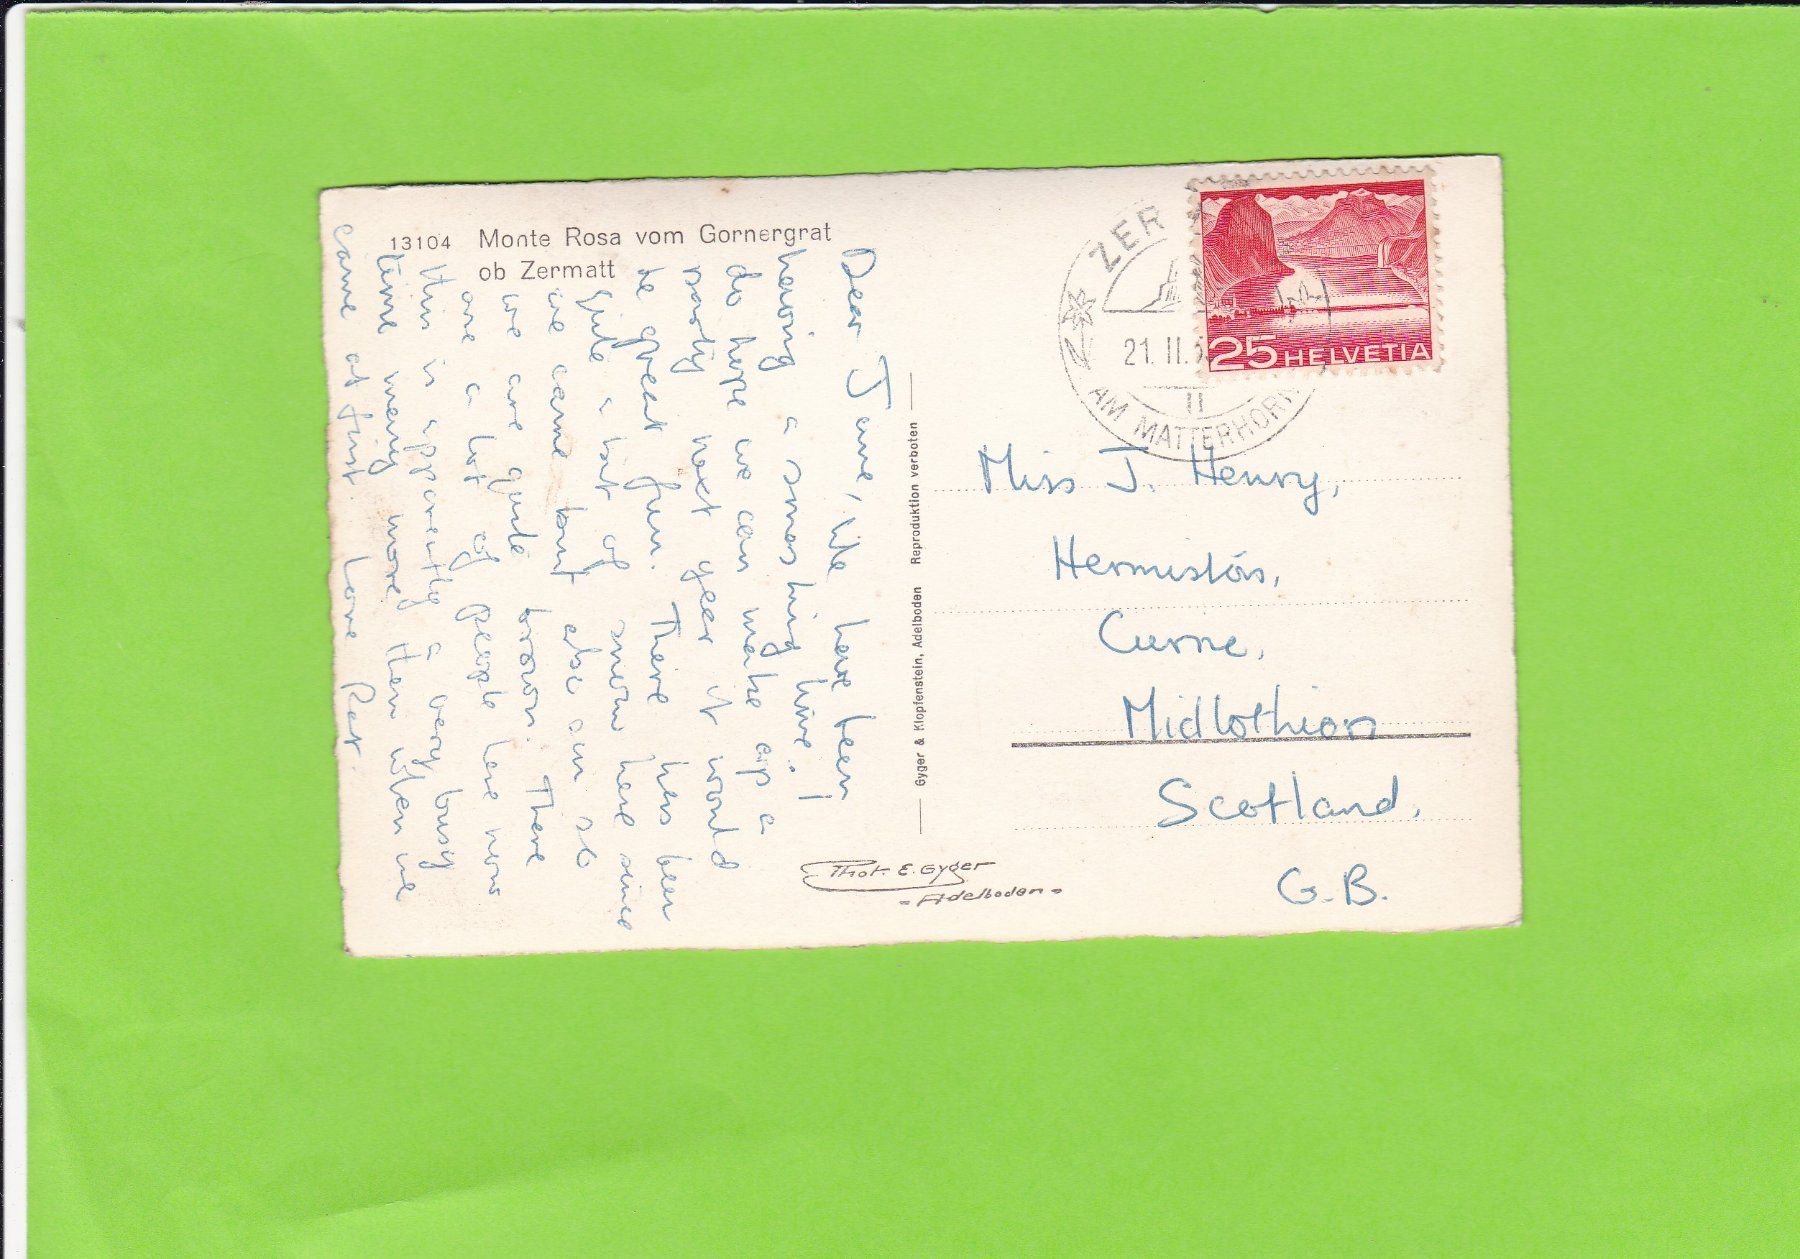 13104 Monte Rosa vom Gornergrat
ob Zermatt
Dear Jane, We have been
having a smashing time. I
do hope we can make up a
party next year it would
be great fun. There has been
quite a bit of snow here since
we came but also sun so
we are quite brown. There
are a lot of people here now
this is apparently a very busy
time many more then when we
came at first. Love Pat.
Gyger & Klopfenstein, Adelboden Reproduktion verboten
Phot. E. Gyger
- Adelboden -
ZER
21. II.
II
AM MATTERHORN
25 HELVETIA
Miss J. Henry,
Hermiston,
Currie,
Midlothian
Scotland.
G.B.